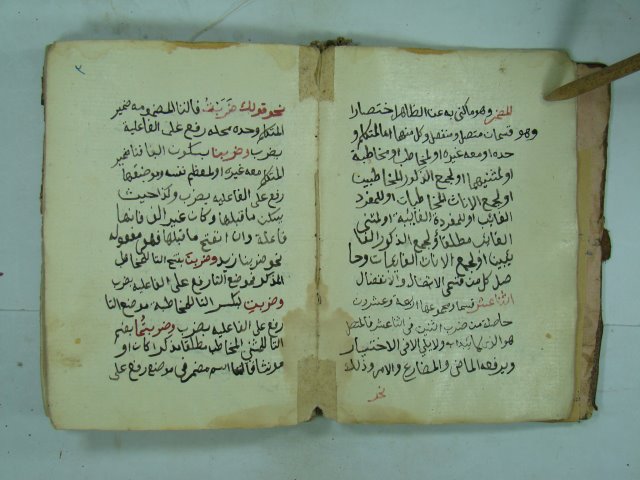 للمضمر وهو ما كنى به عن الظاهر اختصارا
وهو قسمان متصل ومنفصل وكل منهما اما لمتكلم و
حده او معه غيره او لمخاطب او مخاطبة
او لمثنيهما او لجمع الذكور المخاطبين
او لجمع الاناث المخاطبات او للمفرد
الغائب او للمفردة الغايبة او لمثنى
الغائب مطلقا او لجمع الذكور الغا
يبين او لجمع الاناث الغائبات وحا
صل كل من قسمي الاتصال والانفصال
اثنا عشر قسما ومجموعها اربعة وعشرون
حاصلة من ضرب اثنين في اثنا عشر فالمتصل
هو الذي لا يبتدا به ولا يلي الا في الاختيار
ويرفعه الماضي والمضارع والامر وذلك
نحو
٣
نحو قولك ضربت فالتا المضمومة ضمير
المتكلم وحده محله رفع على الفاعلية
بضرب وضربنا بسكون البا فنا ضمير
المتكلم معه غيره او المعظم نفسه وموضعها
رفع على الفاعلية بضرب وكذا حيث
سكن ما قبلها وكان غير الف فانها
فاعلة وان انفتح ما قبلها فهي مفعوله
نحو ضربنا زيد وضربت بفتح التا للمخاطب
المذكر فموضع التا رفع على الفاعلية بضرب
وضربت بكسر التا للمخاطبة موضع التا
رفع على الفاعلية بضرب وضربتما بضم
التا للمثنى المخاطب مطلقا مذكرا كان او
مونثا فالتا اسم مضمر في موضع رفع على